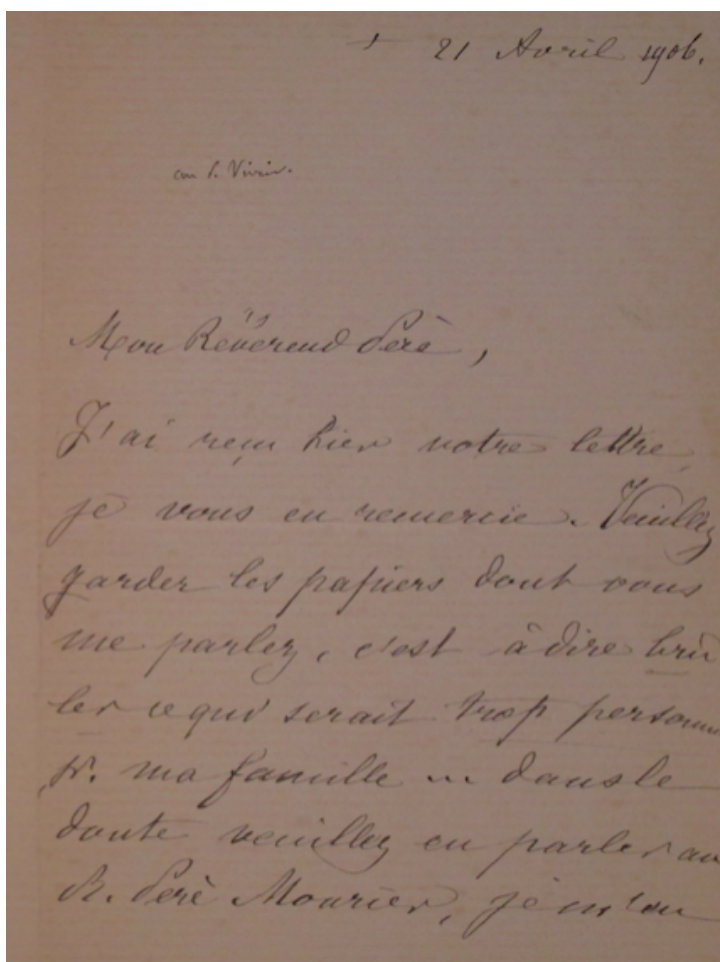 + 21 Avril 1906.
au P. Vivier.
Mon Révérend Père,
J'ai reçu hier votre lettre
je vous en remercie. Veuillez
garder les papiers dont vous
me parlez, c'est à dire brû
ler ce qui serait trop personn
pr. ma famille ... dans le
doute veuillez en parler au
R. Père Mourier, je m'en